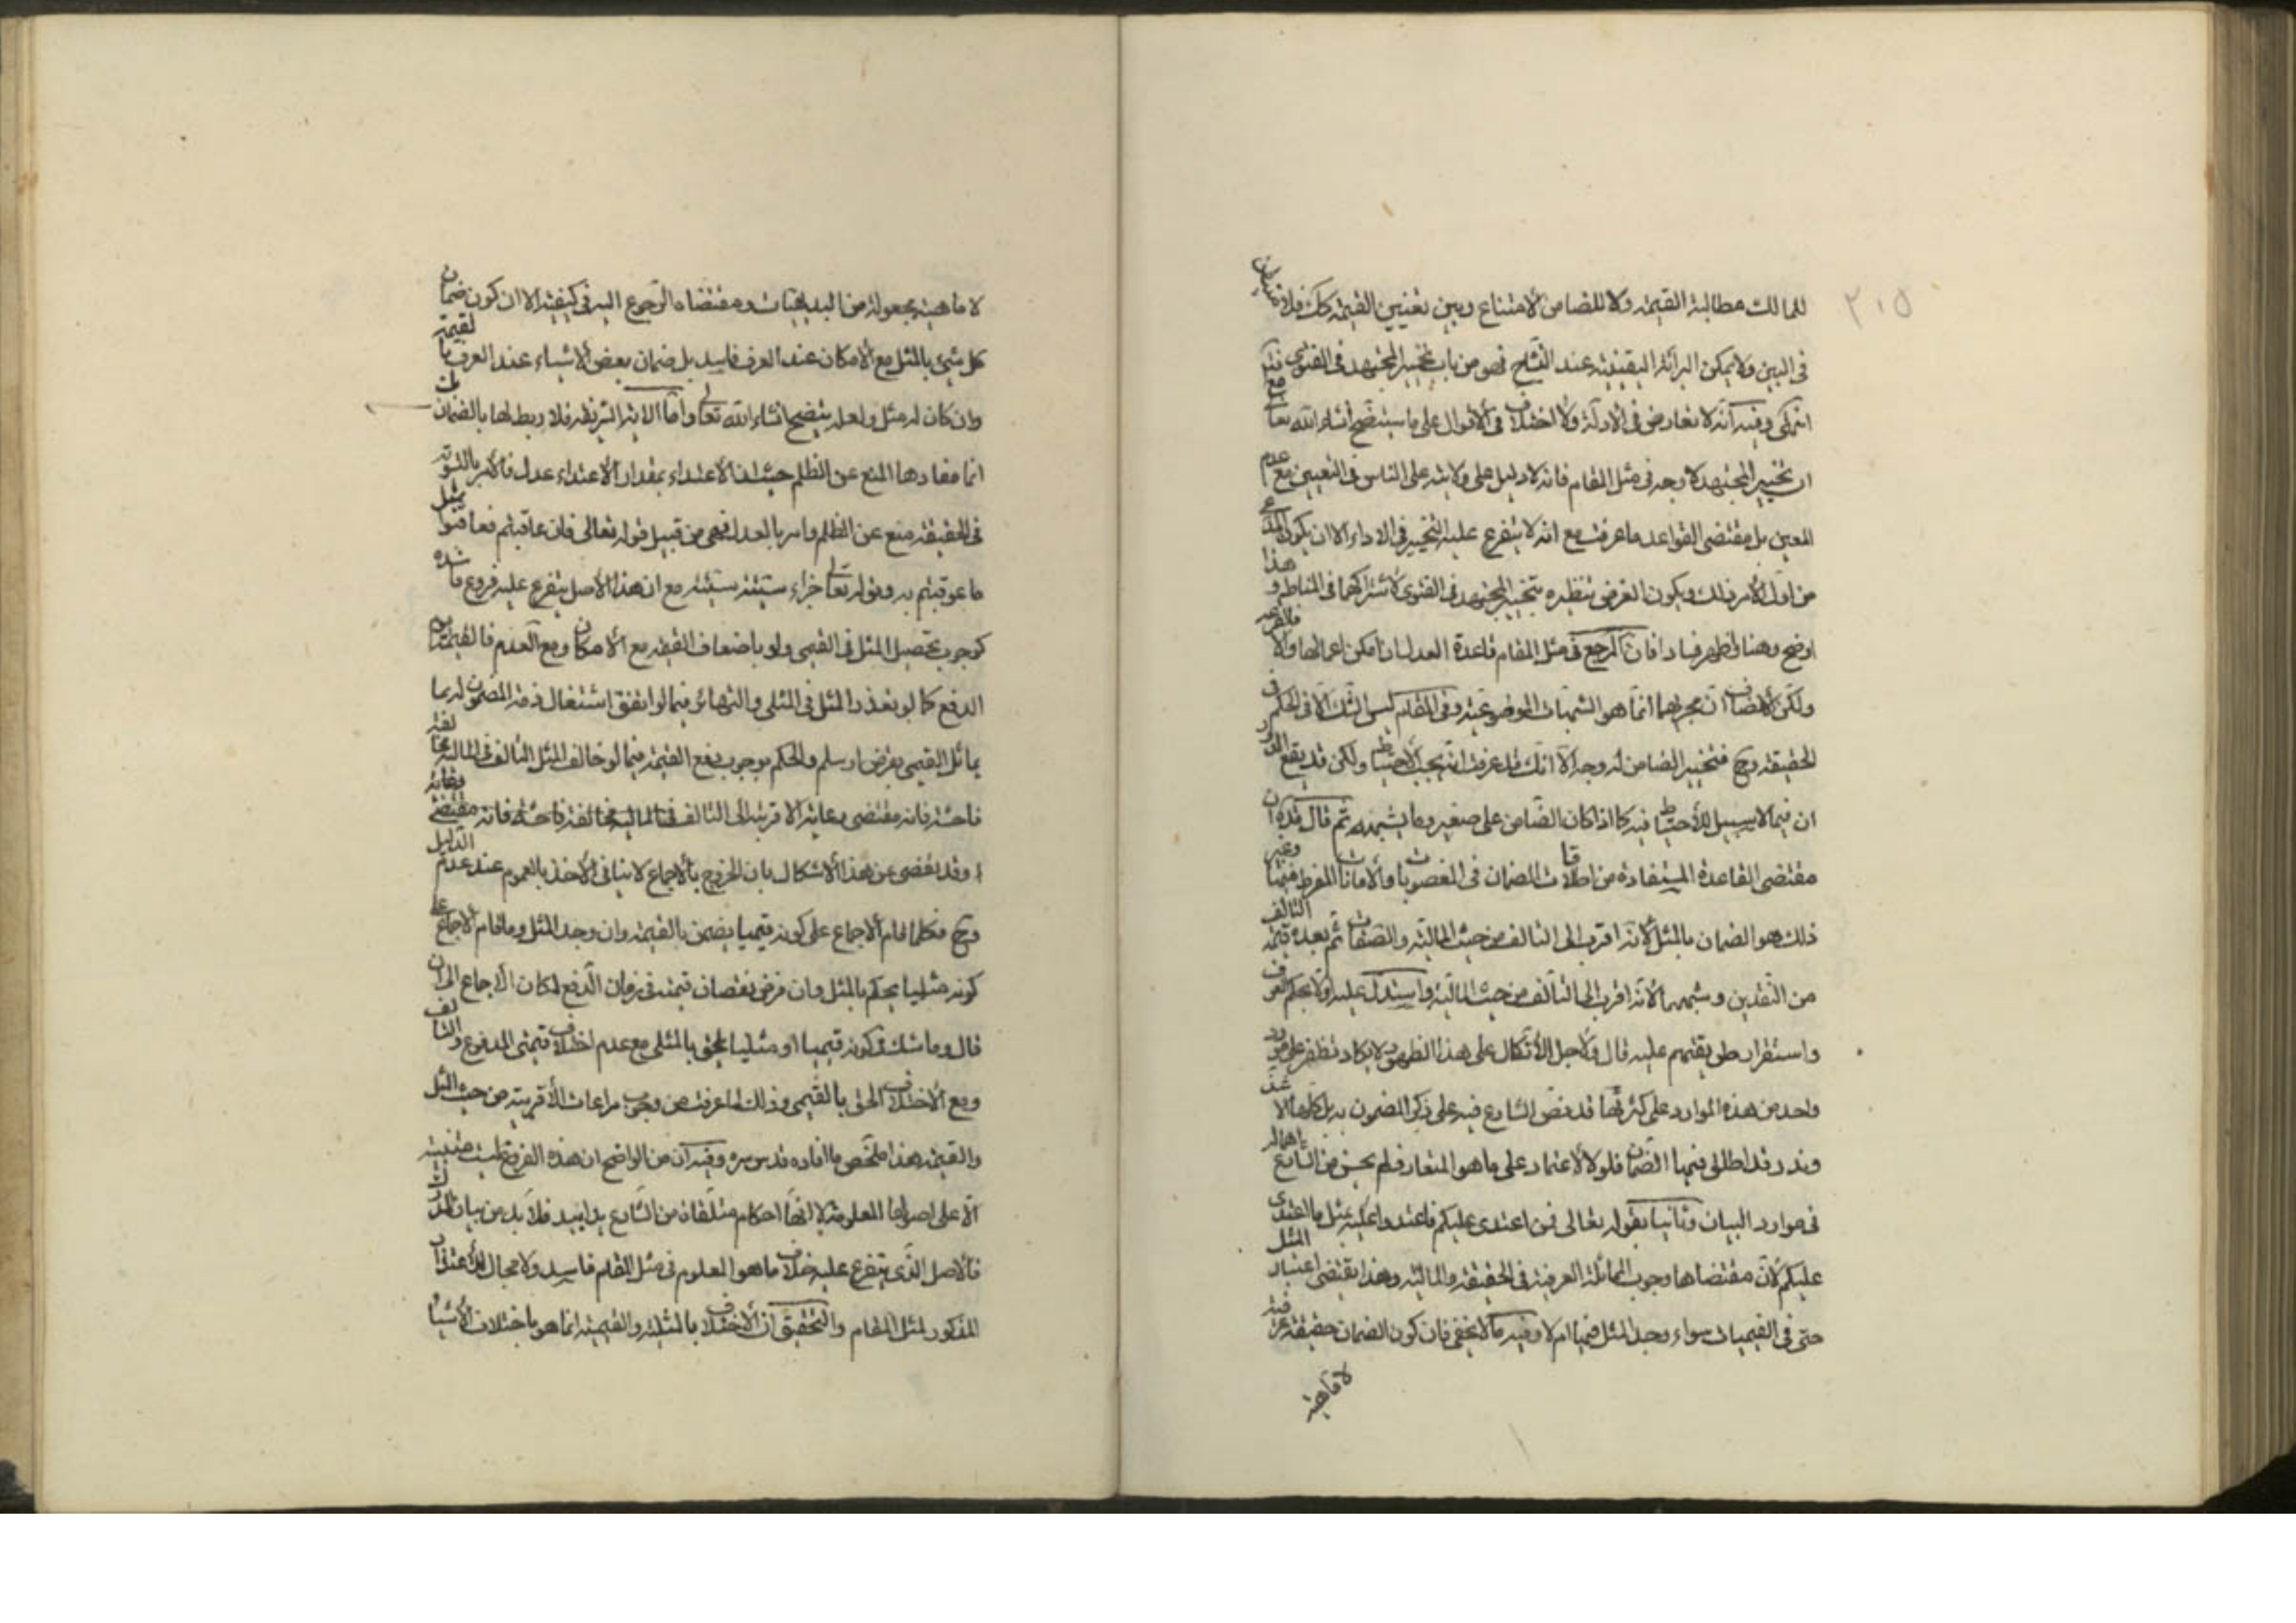 ٢١٥
للمالك مطالبة القيمة ولا للضامن الامتناع وبين تعيين القيمة كك فلا متيقن
في البين ولا يمكن البرائة اليقينية عند التشاح فهو من باب تخيير المجتهد في الفتوى
انتهى وفيه انه لا تعارض في الادلة ولا اختلاف في الاقوال على ما سيتضح انشاء الله تعا مع
ان تخيير المجتهد لا وجه في مثل المقام فانه لا دليل على ولايته على الناس في التعيين مع عدم
المعين بل مقتضى القواعد ما عرفت مع انه لا يتفرع عليه التخيير في الاداء الا ان يكون المدعى
من اول الامر ذلك ويكون الغرض تنظيره بتخيير المجتهد في الفتوى لاشتراكهما في المناط و هذا
اوضح وهنا فظهر فسادا فان المرجع في مثل المقام قاعدة العدل ان امكن اعمالها والا فالقرعة
ولكن الانصاف ان مجريهما انما هو الشبهات الموضوعية وفي المقام ليس الشك الا في الحكم
الحقيقة وح فتخيير الضامن له وجه الا انك قد عرفت انه يجب الاحتياط ولكن قد يقع
ان فيما لا سبيل للاحتياط فيه كما اذا كان الضامن على صغير وما يشبهه ثم قال قده ان
مقتضى القاعدة المستفادة من اطلاقات الضمان في المغصوبات والامانات المفرط فيها وغير
ذلك هو الضمان بالمثل لانه اقرب الى التالف من حيث المالية والصفات ثم بعده قيمة التالف
من النقدين وشبههما لانه اقرب الى التالف من حيث المالية واستدل عليه اولا بحكم العرف
واستقرار طريقتهم عليه قال ولاجل الاتكال على هذا الظهور لا يكاد تظفر على مورد
واحد من هذه الموارد على كثرتها قد نص الشارع فيه على ذكر المضمون به بل كلها الا ما شذ
وندر قد اطلق فيها الضمان فلولا الاعتماد على ما هو المتعارف لم يحسن من الشارع اهماله
في موارد البيان وثانيا بقوله تعالى فمن اعتدى عليكم فاعتدوا عليه بمثل ما اعتدى
عليكم لان مقتضاها وجوب المماثلة العرفية في الحقيقة والمالية وهذا يقتضى اعتبار المثل
حتى في القيميات سواء وجد المثل فيها ام لا وفيه ما لا يخفى فان كون الضمان حقيقة عرفية
لا ماهية
لا ماهية مجعولة من البديهيات ومقتضاه الرجوع اليه في كيفيته الا ان كون ضمان
كل شيئ بالمثل مع الامكان عند العرف فاسد بل ضمان بعض الاشياء عند العرف بالقيمة
وان كان له مثل ولعله يتضح انشاء الله تعالى واما الاية الشريفة فلا ربط لها بالضمان
انما مفادها المنع عن الظلم حيث ان الاعتداء بمقدار الاعتداء عدل فالامر بالتسوية
في الحقيقة منع عن الظلم وامر بالعدل فهى من قبيل قوله تعالى فان عاقبتم فعاقبوا بمثل
ما عوقبتم به وقوله تعالى جزاء سيئة سيئة مع ان هذا الاصل يتفرع عليه فروع فاسدة
كوجوب تحصيل المثل في القيمى ولو باضعاف القيمة مع الامكان ومع العدم فالقيمة يوم
الدفع كما لو تعذر المثل في المثلى والتهاتر فيما لو اتفق اشتغال ذمة المضمون له بما
يماثل القيمى بقرض او سلم والحكم بوجوب دفع القيمة فيما لو خالف المثل التالف في المالية مخالفة
فاحشة فانه مقتضى رعاية الاقربية الى التالف في المالية مخالفة فاحشة فانه مقتضى رعاية
وقد تفصى عن هذا الاشكال بان الخروج بالاجماع لا ينافى الاخذ بالعموم عند عدم الدليل
وح فكلما قام الاجماع على كونه قيميا يضمن بالقيمة وان وجد المثل وما قام الاجماع على
كونه مثليا يحكم بالمثل وان فرض نقصان قيمته في زمان الدفع لمكان الاجماع الى ان
قال وما شك في كونه قيميا او مثليا يلحق بالمثلى مع عدم اختلاف قيمتى المدفوع والتالف
ومع الاختلاف الحق بالقيمى وذلك لما عرفت من وجوب مراعات الاقربية من حيث المثل
والقيمة هذا ملخص ما افاده قدس سره وفيه ان من الواضح ان هذه الفروع ليست مبنية
الا على اصولها المعلومة لا انها احكام متلقاة من الشارع يدا بيد فلا بد من بيان المدرك
فالاصل الذى يتفرع عليه خلاف ما هو المعلوم في مثل المقام فاسد ولا مجال للاعتذار
المذكور لمثل المقام والتحقيق ان الاختلاف بالمثلية والقيمية انما هو باختلاف الاشياء